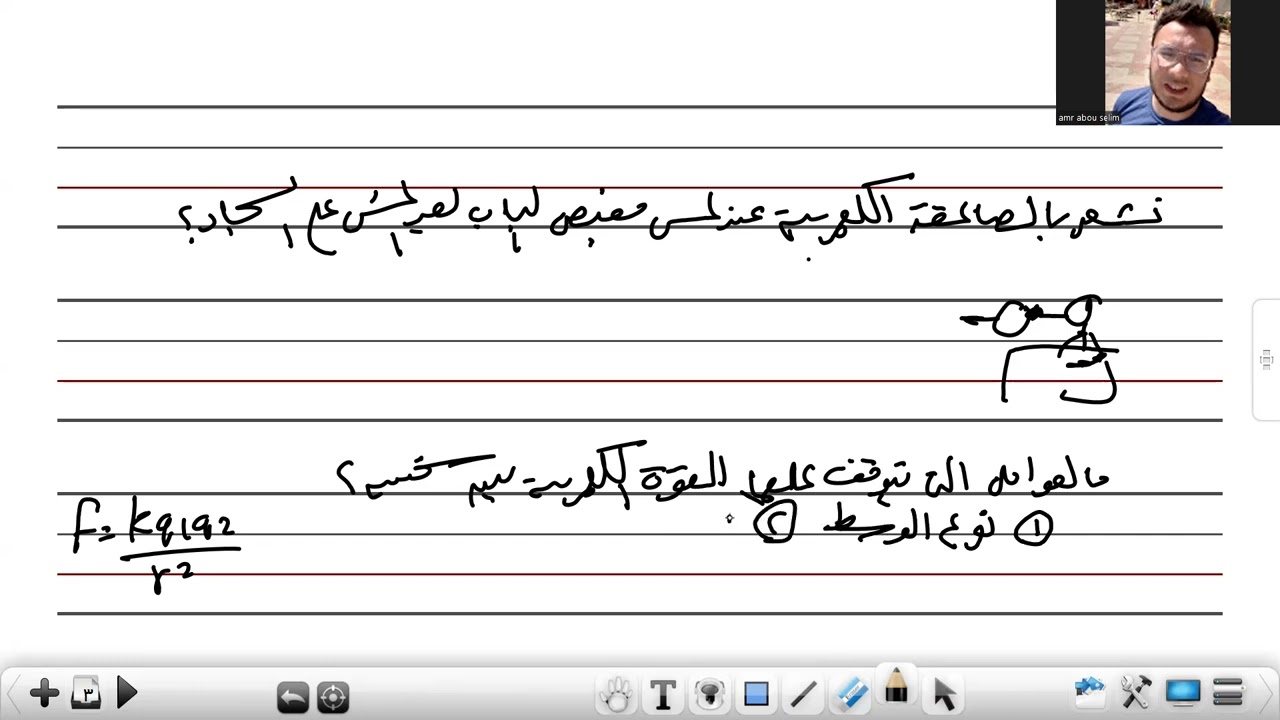 amr abou selim
نشعر بالصاعقة الكهربية عند لمس مقبض الباب بعد المشى على السجاد؟
ما العوامل التى تتوقف عليها القوة الكهربية بين جسمين؟
① نوع الوسط ②
F = kq1q2
r2
T
٣